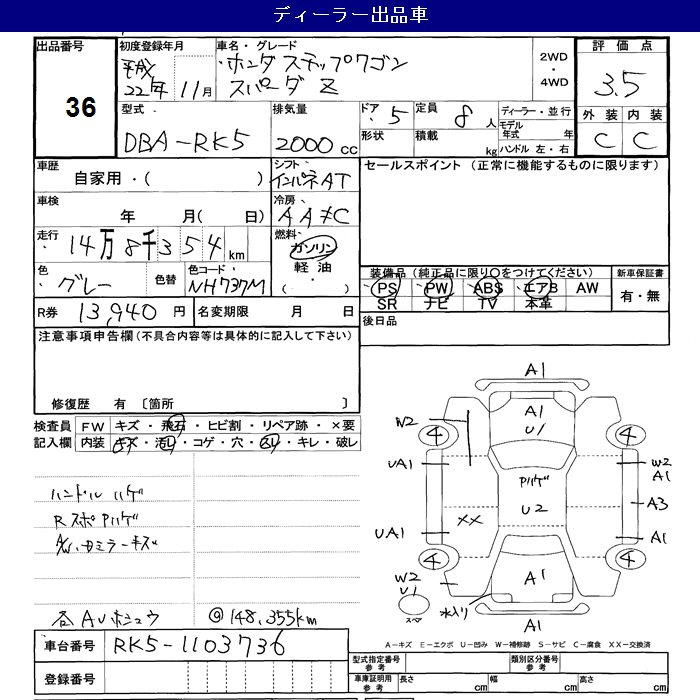 ディーラー出品車
出品番号
36
初度登録年月
平成
22年 11月
車名・グレード
ホンダ ステップワゴン
スパーダ Z
2WD
・
4WD
評価点
3.5
外装 内装
C C
型式・
DBA-RK5
排気量
2000 cc
ドア・ 5
形状
定員 8 人
積載 kg
ディーラー・並行
モデル年式 年
ハンドル 左・右
車歴
自家用・( )
シフト・
インパネAT
セールスポイント (正常に機能するものに限ります)
車検
年 月( 日)
冷房・
AAC
走行・
14万8千354 km
燃料・
ガソリン
軽油
・( )
色・
グレー
色替
色コード・
NH737M
装備品(純正品に限り○をつけてください)
PS PW ABS エアB AW
SR ナビ TV 本革
新車保証書
有・無
R券 13,940 円
名変期限 月 日
後日品
注意事項申告欄(不具合内容等は具体的に記入して下さい)
修復歴 有 〔箇所 〕
検査員 FW キズ・飛石・ヒビ割・リペア跡・×要
記入欄 内装 キズ・汚れ・コゲ・穴・スレ・キレ・破レ
ハンドル ハゲ
Rスポ Pハゲ
ミラーキズ
各AUホシュウ
@148,355km
A1
A1
U1
W2
4
4
UA1
W2
A1
Pハゲ
U2
A3
XX
UA1
A1
4
4
W2
U1
A1
水入り
スペア
A1
A-キズ E-エクボ U-凹み W-補修跡 S-サビ C-腐食 XX-交換済
車台番号 RK5-1103736
登録番号
型式指定番号 参考
類別区分番号 参考
車庫証明用 参考
長さ cm 幅 cm 高さ cm